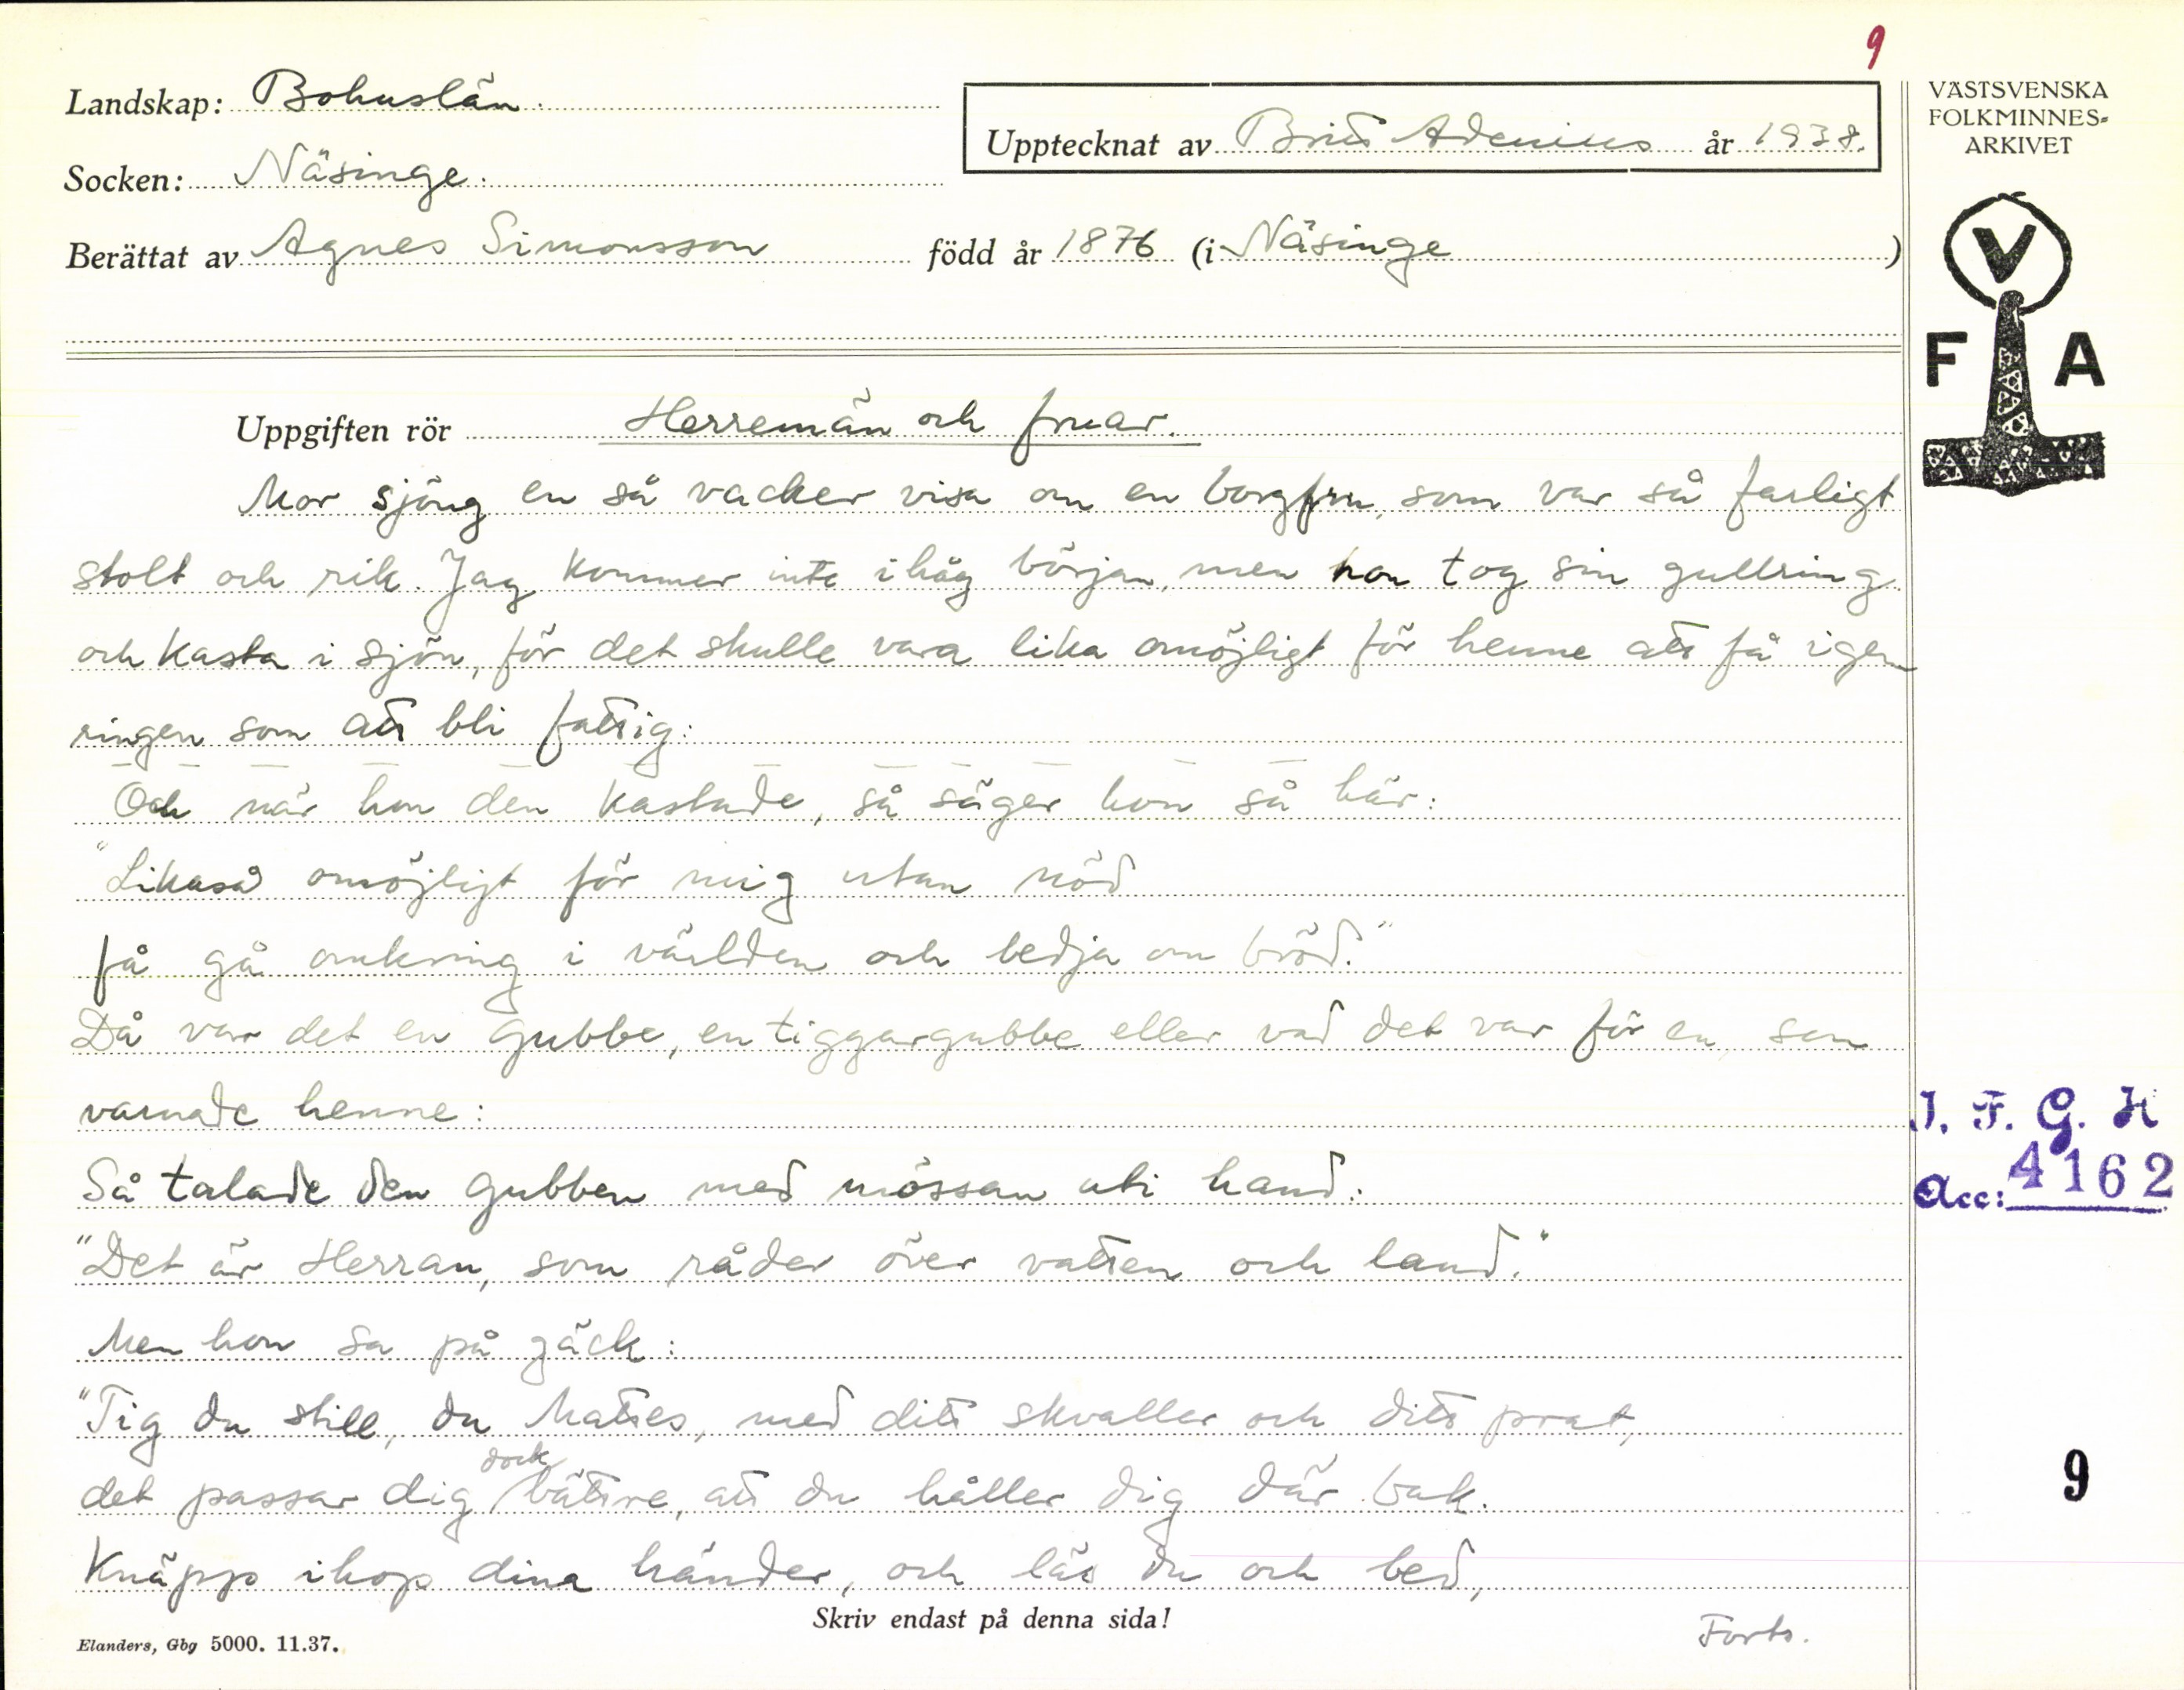 9
Landskap: Bohuslän.
Upptecknat av Britt Adenius år 1938.
Socken: Näsinge.
Berättat av Agnes Simonsson född år 1876 (i Näsinge )
VÄSTSVENSKA
FOLKMINNES-
ARKIVET
V
F A
Uppgiften rör Herremän och fruar.
Mor sjöng en så vacker visa om en borgfru, som var så farligt
stolt och rik. Jag kommer inte ihåg början, men hon tog sin gullring
och kasta i sjön, för det skulle vara lika omöjligt för henne att få igen
ringen som att bli fattig:
Och när hon den kastade, så säger hon så här:
"Likaså omöjligt för mig utan nöd
få gå omkring i världen och bedja om bröd."
Då var det en gubbe, en tiggargubbe eller vad det var för en, som
varnade henne:
Så talade den gubben med mössan uti hand:
"Det är Herran, som råder över vatten och land."
Men hon sa på gäck:
"Tig du still, du Mattes, med ditt skvaller och ditt prat,
det passar dig dock bättre, att du håller dig där bak.
Knäpp ihop dina händer, och läs du och bed,
Skriv endast på denna sida!
Forts.
Elanders, Gbg 5000. 11.37.
I. F. G. H
Acc: 4162
9